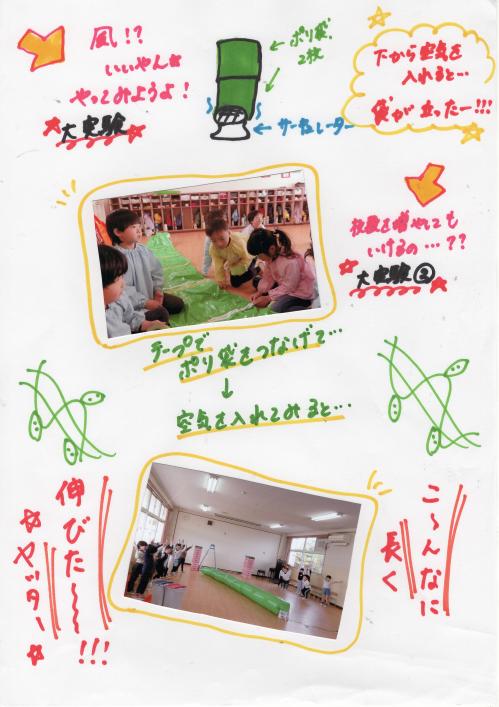 風!?
いいやん☆
やってみようよ!
☆大実験☆
←ポリ袋
2枚
←サーキュレーター
下から空気を
入れると…
袋が立ったー!!!
枚数を増やしても
いけるの…??
☆大実験②☆
テープで
ポリ袋をつなげて…
↓
空気を入れてみると…
こ〜んなに
長く
伸びた〜〜!!!
☆ヤッター☆